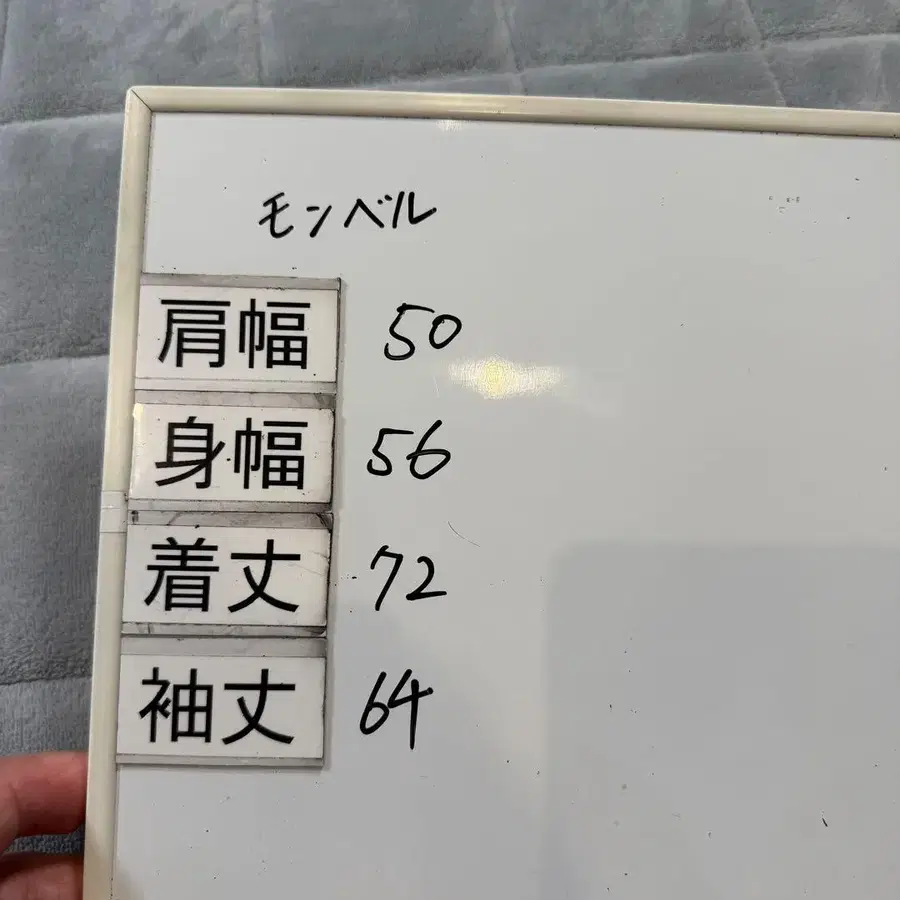 モンベル
肩幅 50
身幅 56
着丈 72
袖丈 64